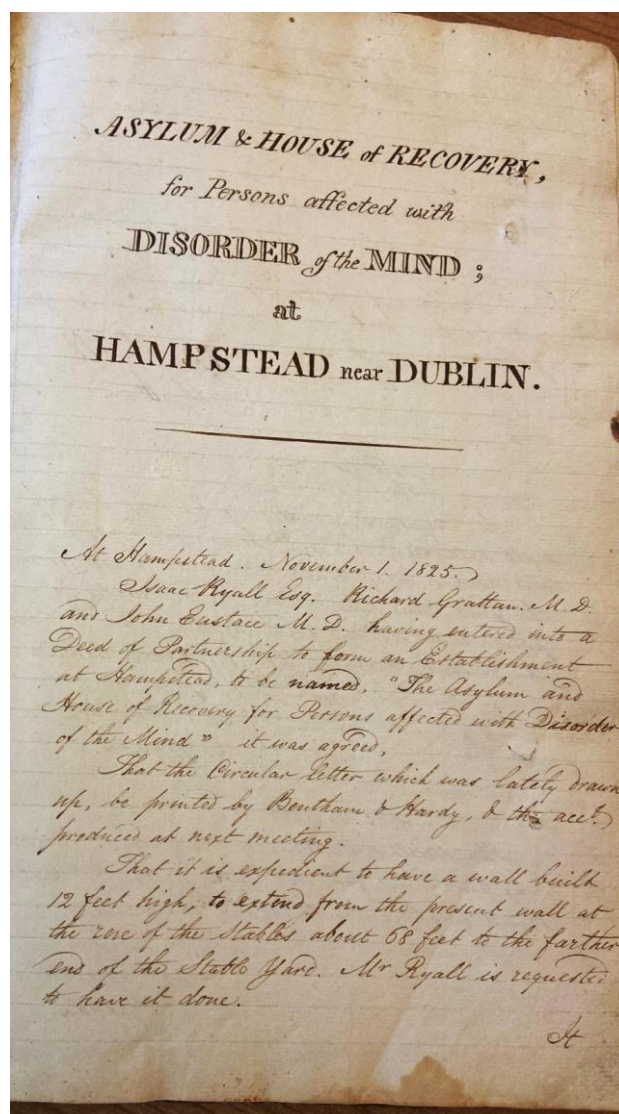 ASYLUM & HOUSE of RECOVERY,
for Persons affected with
DISORDER of the MIND ;
at
HAMPSTEAD near DUBLIN.
At Hampstead. November 1. 1825.
Isaac Ryall Esq. Richard Grattan. M.D.
and John Eustace M.D. having entered into a
Deed of Partnership to form an Establishment
at Hampstead, to be named, "The Asylum and
House of Recovery for Persons affected with Disorder
of the Mind" it was agreed,
That the Circular letter which was lately drawn
up, be printed by Bentham & Hardy, & the acct.
produced at next meeting.
That it is expedient to have a wall built
12 feet high, to extend from the present wall at
the rere of the Stables about 68 feet to the farther
end of the Stable Yard. Mr Ryall is requested
to have it done.
It